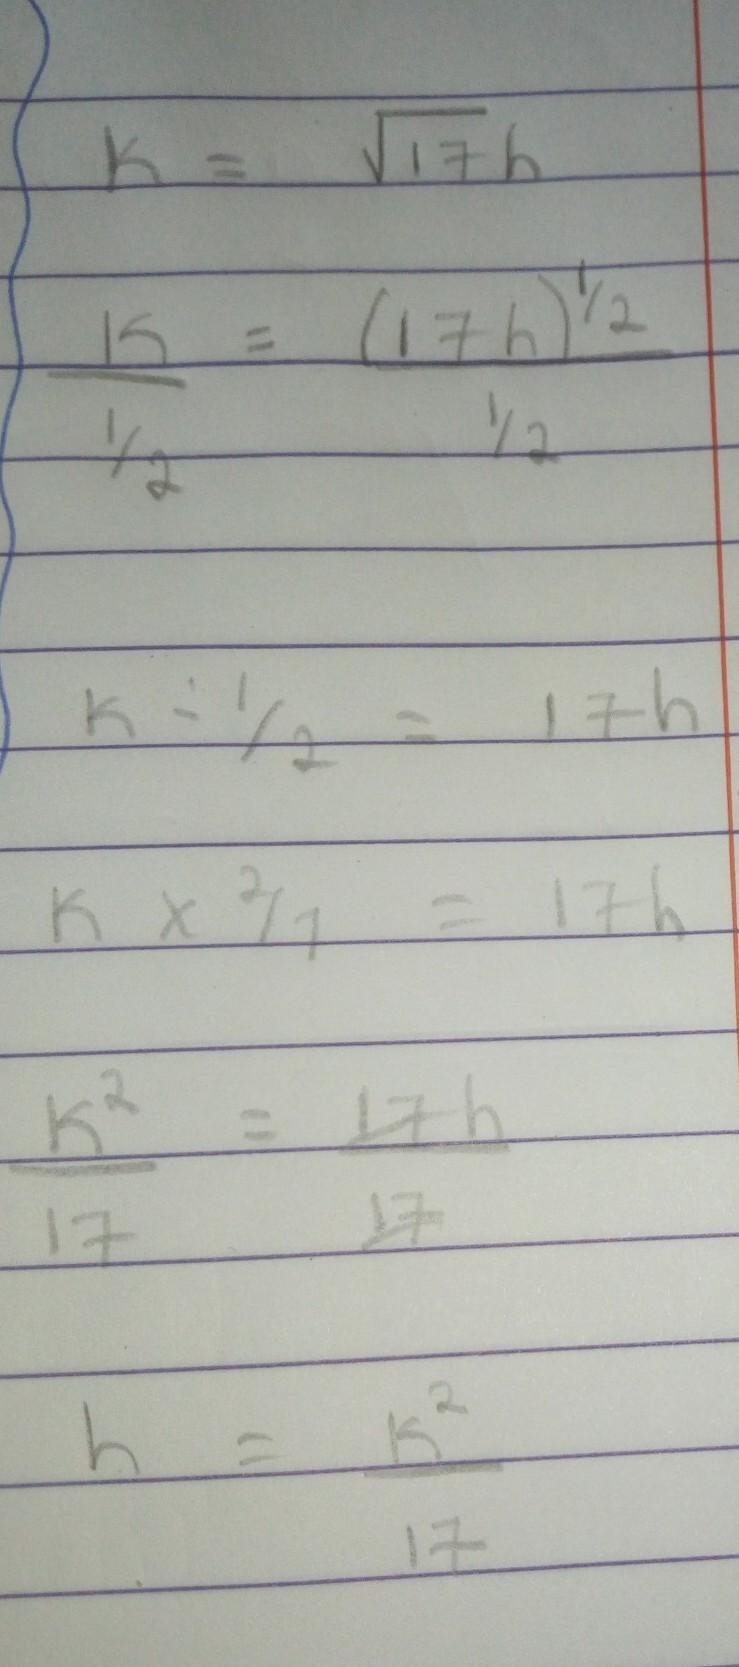 K = √17h
K/(1/2) = (17h)^1/2/(1/2)
K ÷ 1/2 = 17h
K × 2/1 = 17h
K²/17 = 17h/17
h = K²/17